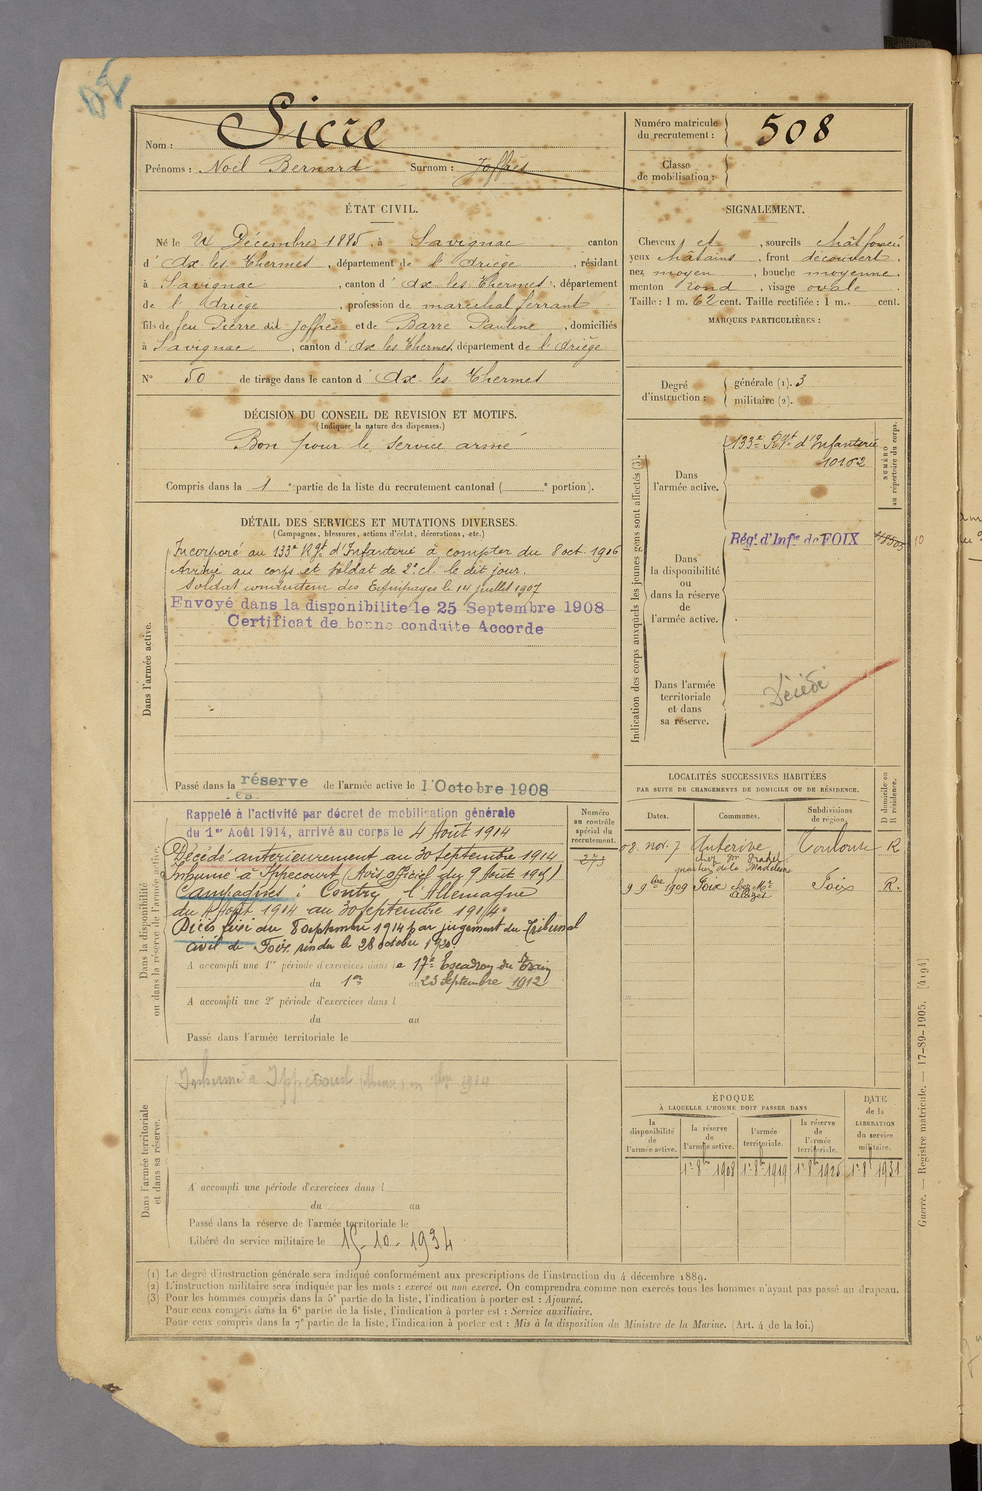 Nom : Sicre
Prénoms : Noël Bernard Surnom : Joffres
Numéro matricule du recrutement : 508
Classe de mobilisation :
ÉTAT CIVIL.
Né le Décembre 1885, à Savignac canton
d'Ax les Thermes, département de l'Ariège, résidant
à Savignac, canton d'Ax les Thermes, département
de l'Ariège, profession de maréchal ferrant
fils de feu Pierre dit Joffres et de Barre Pauline, domiciliés
à Savignac, canton d'Ax les Thermes, département de l'Ariège
N° 50 de tirage dans le canton d'Ax les Thermes
SIGNALEMENT.
Cheveux et, sourcils chât foncé
yeux châtains, front découvert,
nez moyen, bouche moyenne
menton rond, visage ovale
Taille : 1 m. 62 cent. Taille rectifiée : 1 m. cent.
MARQUES PARTICULIÈRES :
Degré d'instruction : générale (1). 3
militaire (2).
DÉCISION DU CONSEIL DE REVISION ET MOTIFS.
(Indiquer la nature des dispenses.)
Bon pour le service armé
Compris dans la 1e partie de la liste du recrutement cantonal ( e portion).
DÉTAIL DES SERVICES ET MUTATIONS DIVERSES.
(Campagnes, blessures, actions d'éclat, décorations, etc.)
Dans l'armée active.
Incorporé au 133e Rgt d'Infanterie à compter du 8 oct. 1906
Arrivé au corps et soldat de 2e cl. le dit jour.
Soldat conducteur des Equipages le 14 juillet 1907
Envoyé dans la disponibilite le 25 Septembre 1908
Certificat de bonne conduite Accorde
Passé dans la réserve de l'armée active le 1 Octobre 1908
Indication des corps auxquels les jeunes gens sont affectés (3).
NUMÉRO au répertoire du corps.
Dans l'armée active.
133e Rgt d'Infanterie
10162
Dans la disponibilité ou dans la réserve de l'armée active.
Régt d'Infie de FOIX
Dans l'armée territoriale et dans sa réserve.
Décédé
Dans la disponibilité ou dans la réserve de l'armée active.
Rappelé à l'activité par décret de mobilisation générale
du 1er Août 1914, arrivé au corps le 4 Août 1914
Décédé antérieurement au 30 septembre 1914
Inhumé à Ippécourt (Avis officiel du 9 Août 1915)
Campagnes : Contre l'Allemagne
du 4 Août 1914 au 30 septembre 1914.
Décès fixé au 8 septembre 1914 par jugement du Tribunal
civil de Foix rendu le 28 octobre 1920
A accompli une 1re période d'exercices dans le 17e Escadron du Train
du 1er au 23 Septembre 1912
A accompli une 2e période d'exercices dans l
du au
Passé dans l'armée territoriale le
Numéro au contrôle spécial du recrutement.
273
LOCALITÉS SUCCESSIVES HABITÉES
PAR SUITE DE CHANGEMENTS DE DOMICILE OU DE RÉSIDENCE.
Dates. Communes. Subdivisions de région. D domicile ou R résidence.
08. nov. 7 Auterive Toulouse R
quartier de la Madeleine
9 9bre 1909 Foix Foix R.
Dans l'armée territoriale et dans sa réserve.
Inhumé à Ippécourt (Meuse) en 1914
A accompli une période d'exercices dans l
du au
Passé dans la réserve de l'armée territoriale le
Libéré du service militaire le 15-10-1934
ÉPOQUE
À LAQUELLE L'HOMME DOIT PASSER DANS
la disponibilité de l'armée active.
la réserve de l'armée active.
l'armée territoriale.
la réserve de l'armée territoriale.
DATE de la LIBÉRATION du service militaire.
1r 8bre 1908 1r 8bre 1919 1r 8bre 1925 1r 8 1931
(1) Le degré d'instruction générale sera indiqué conformément aux prescriptions de l'instruction du 4 décembre 1889.
(2) L'instruction militaire sera indiquée par les mots : exercé ou non exercé. On comprendra comme non exercés tous les hommes n'ayant pas passé au drapeau.
(3) Pour les hommes compris dans la 5e partie de la liste, l'indication à porter est : Ajourné.
Pour ceux compris dans la 6e partie de la liste, l'indication à porter est : Service auxiliaire.
Pour ceux compris dans la 7e partie de la liste, l'indication à porter est : Mis à la disposition du Ministre de la Marine. (Art. 4 de la loi.)
Guerre. — Registre matricule. — 17-89-1905. [4194]